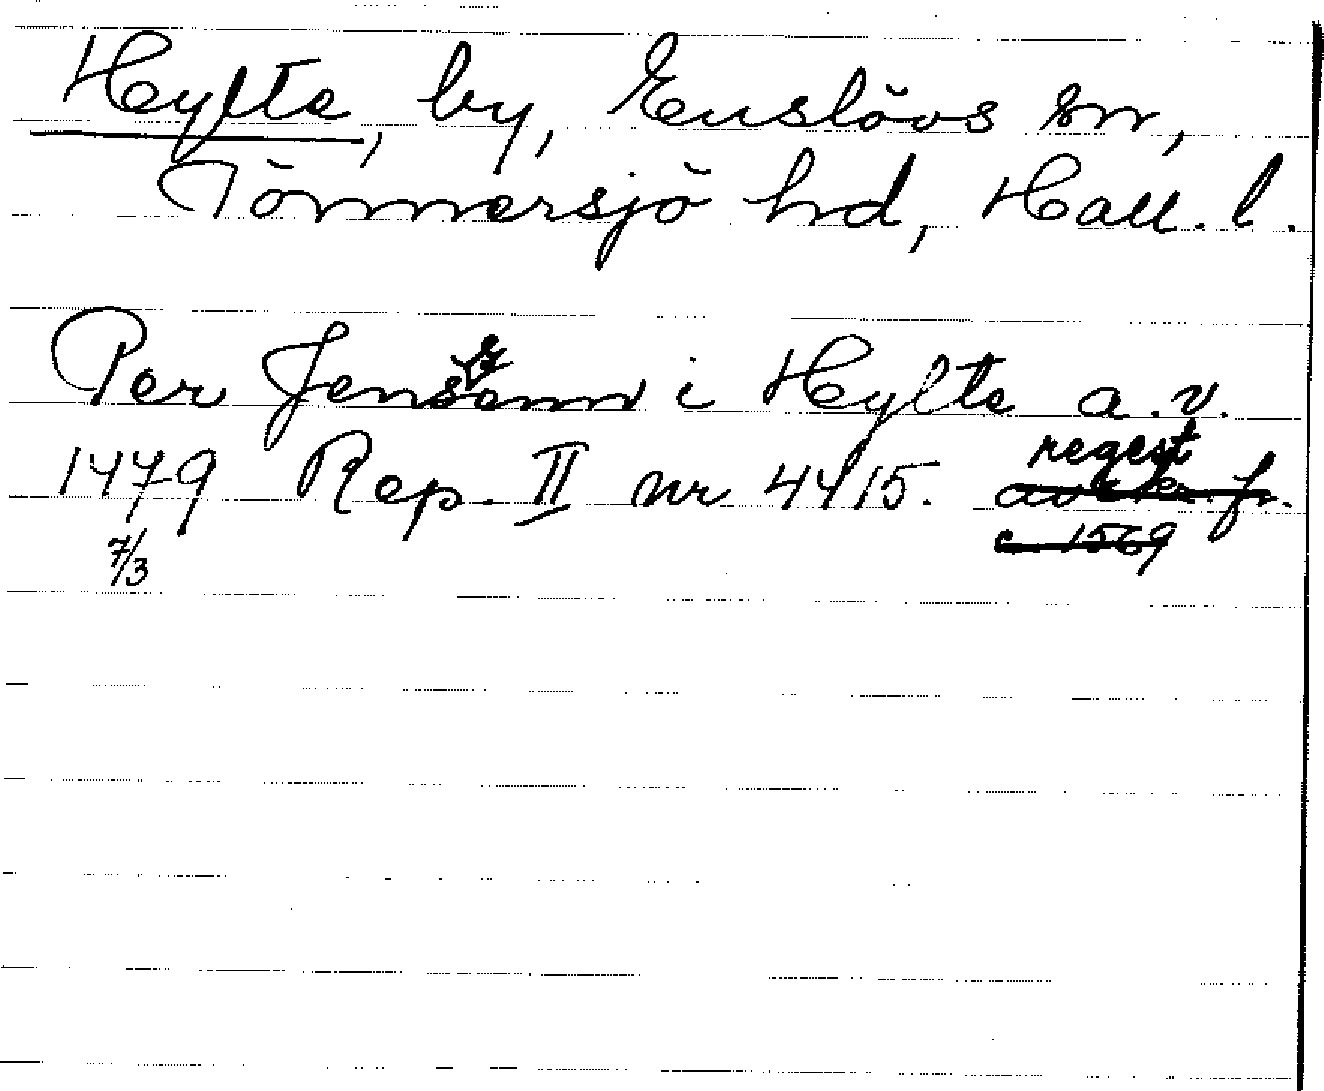 Hylte, by, Enslövs sn,
Tönnersjö hd, Hall. l.
Per Jensenn i Hylte a.v.
1479 Rep. II nr 4415. regest
7/3 c 1569